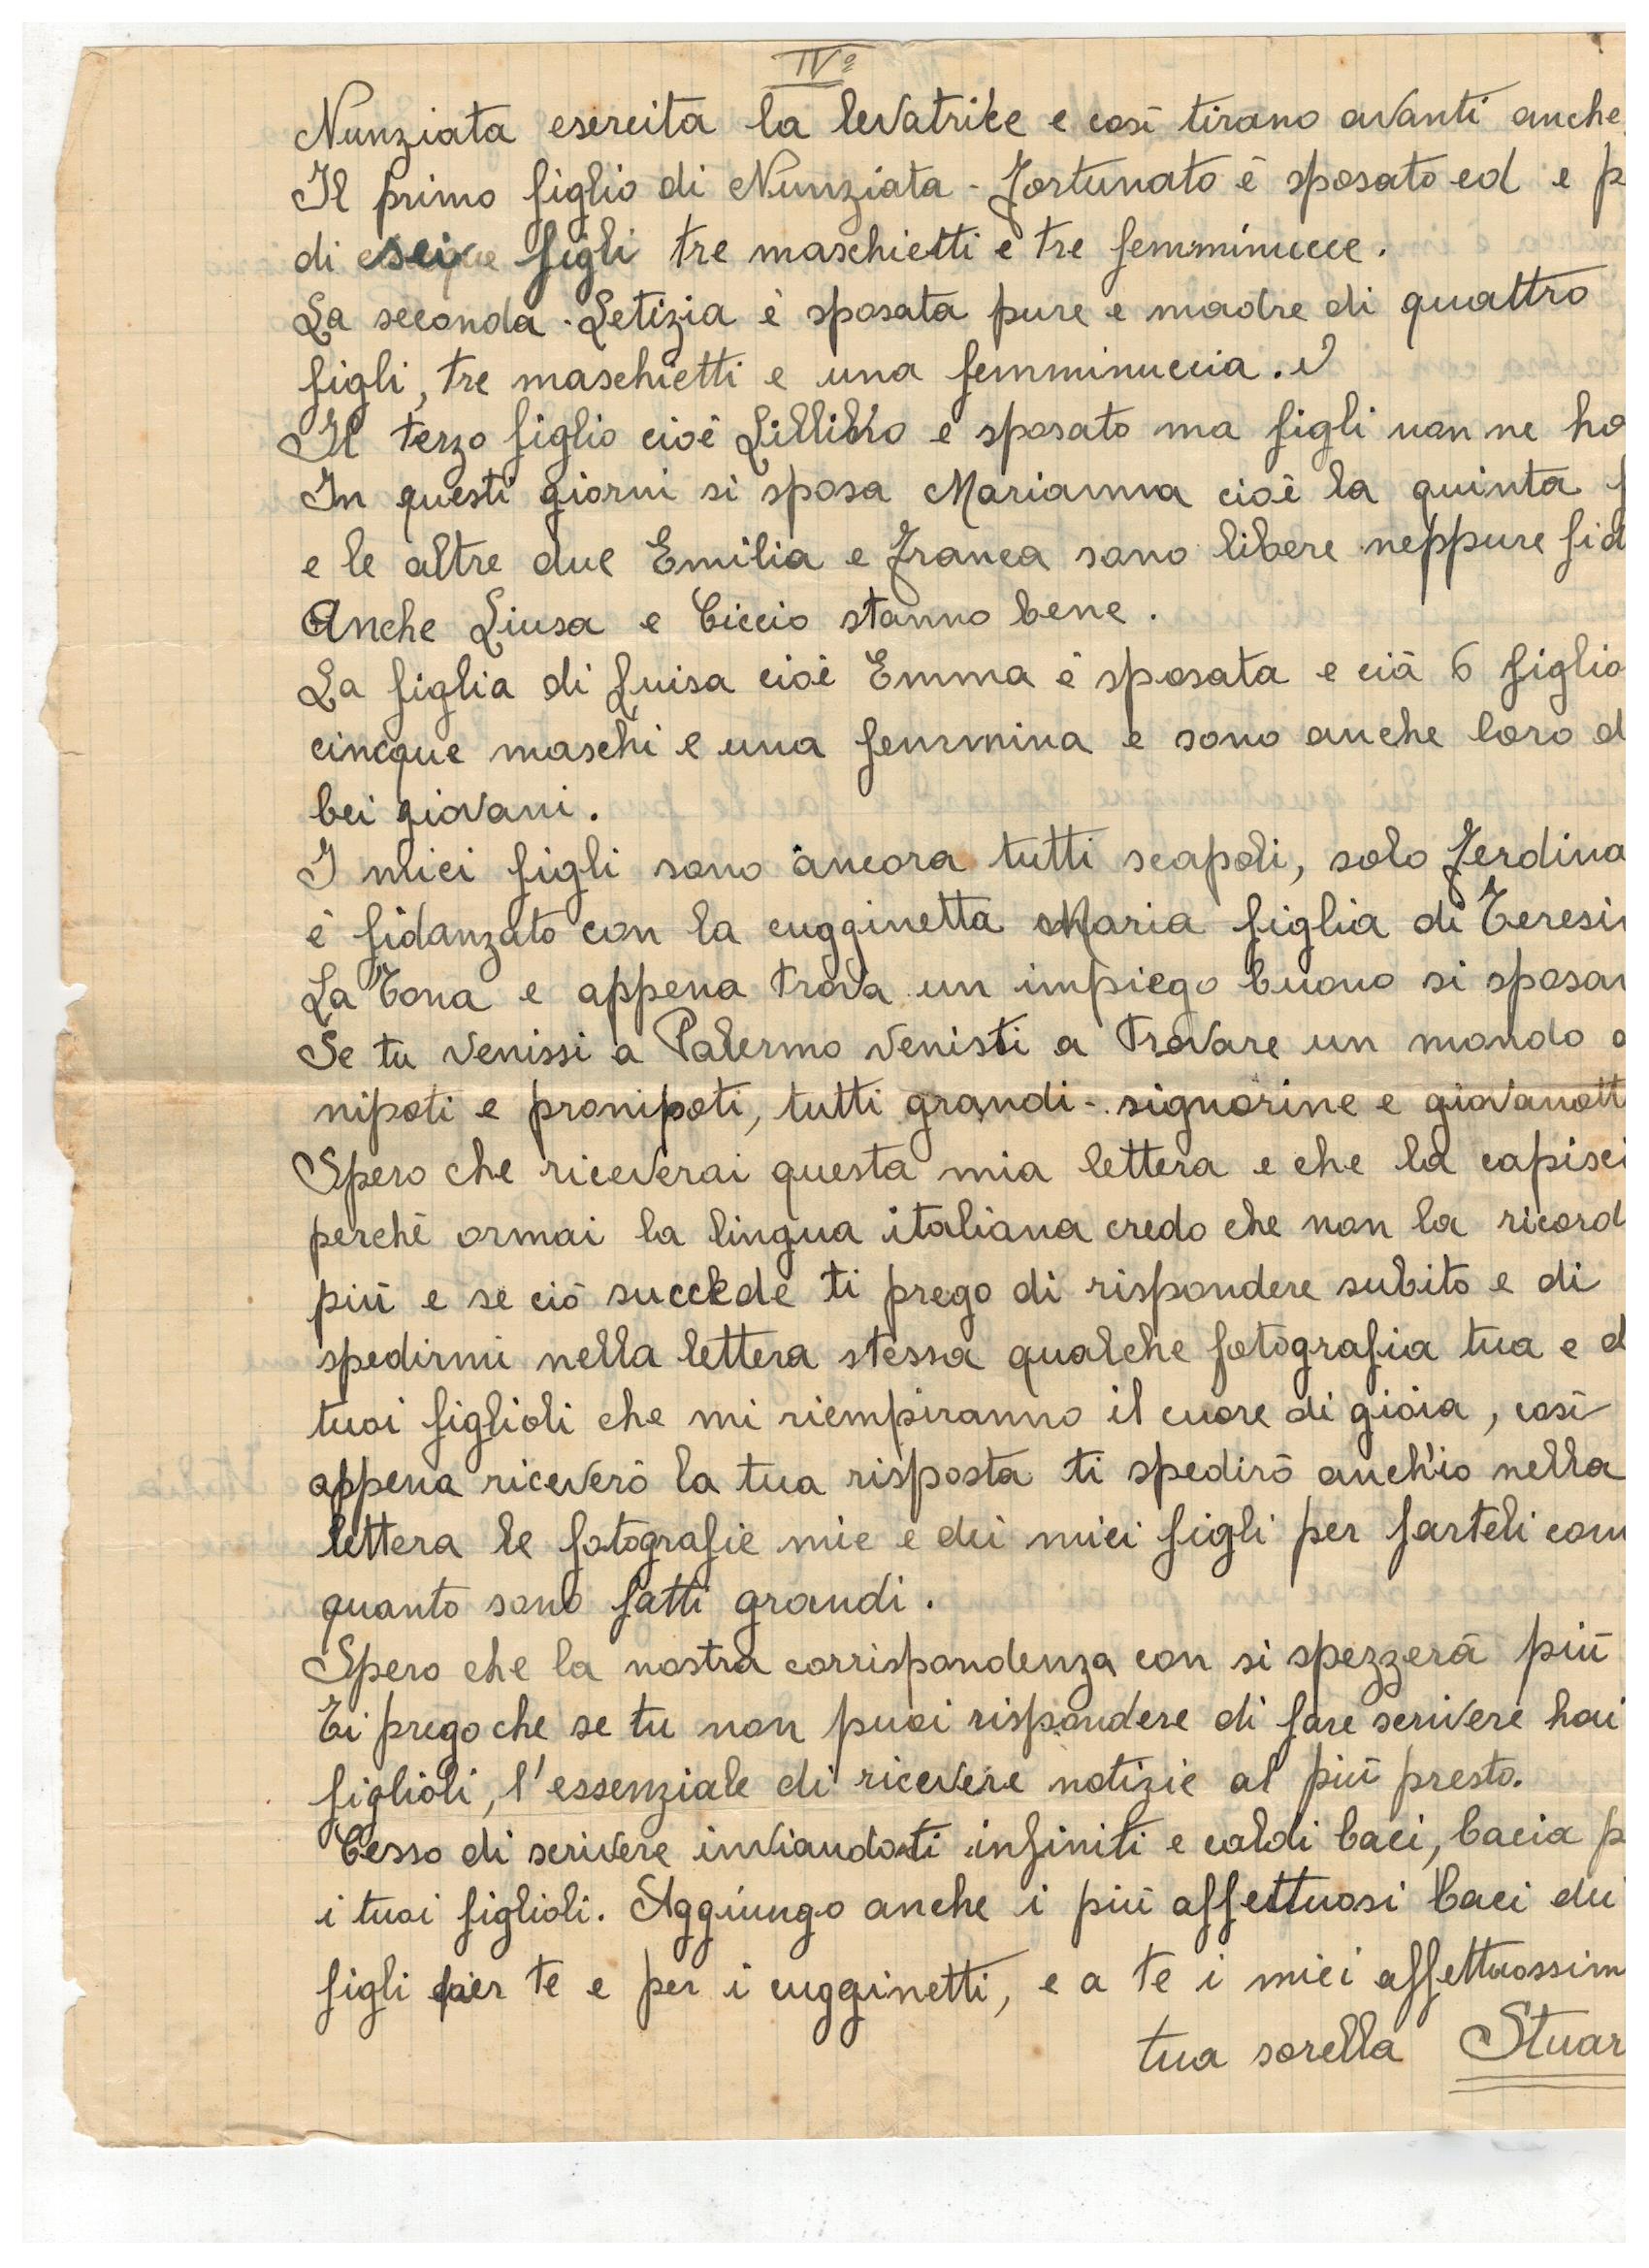 IVº
Nunziata esercita la levatrice e così tirano avanti anche
Il primo figlio di Nunziata - Fortunato è sposato ed e p
di sei figli tre maschietti e tre femminucce.
La seconda - Letizia è sposata pure e madre di quattro
figli, tre maschietti e una femminuccia.
Il terzo figlio cioè Lillino e sposato ma figli non ne ha
In questi giorni si sposa Marianna cioè la quinta f
e le altre due Emilia e Franca sono libere neppure fid
Anche Liusa e Ciccio stanno bene.
La figlia di Luisa cioè Emma è sposata e cià 6 figlio
cincque maschi e una femmina e sono anche loro d
bei giovani.
I miei figli sono ancora tutti scapoli, solo Ferdina
è fidanzato con la cugginetta Maria figlia di Teresin
La Tona e appena trova un impiego buono si sposan
Se tu venissi a Palermo venisti a trovare un mondo d
nipoti e pronipoti, tutti grandi - signorine e giovanott
Spero che riceverai questa mia lettera e che la capisci
perchè ormai la lingua italiana credo che non la ricord
più e se ciò succede ti prego di rispondere subito e di
spedirmi nella lettera stessa qualche fotografia tua e d
tuoi figlioli che mi riempiranno il cuore di gioia, così
appena riceverò la tua risposta ti spedirò anch'io nella
lettera le fotografie mie e dei miei figli per farteli con
quanto sono fatti grandi.
Spero che la nostra corrispondenza con si spezzerà più
Ti prego che se tu non puoi rispondere di fare scrivere hai
figlioli, l'essenziale di ricevere notizie al più presto.
Cesso di scrivere inviandoti infiniti e caldi baci, bacia p
i tuoi figlioli. Aggiungo anche i più affettuosi baci dei
figli per te e per i cugginetti, e a te i miei affettuossim
tua sorella Stuar